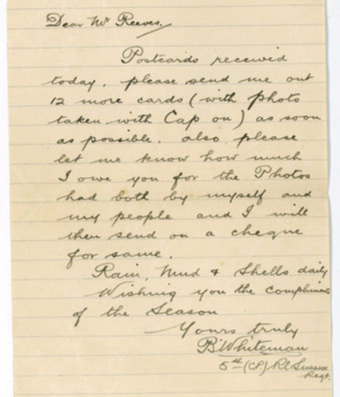 Dear Mr Reeves.
Postcards received
today. please send me out
12 more cards (with photo
taken with Cap on) as soon
as possible. also please
let me know how much
I owe you for the Photos
had both by myself and
my people and I will
then send on a cheque
for same.
Rain, Mud & Shells daily
Wishing you the compliments
of the Season
Yours truly
B Whiteman
5th (C.P.) Rl Sussex
Regt.